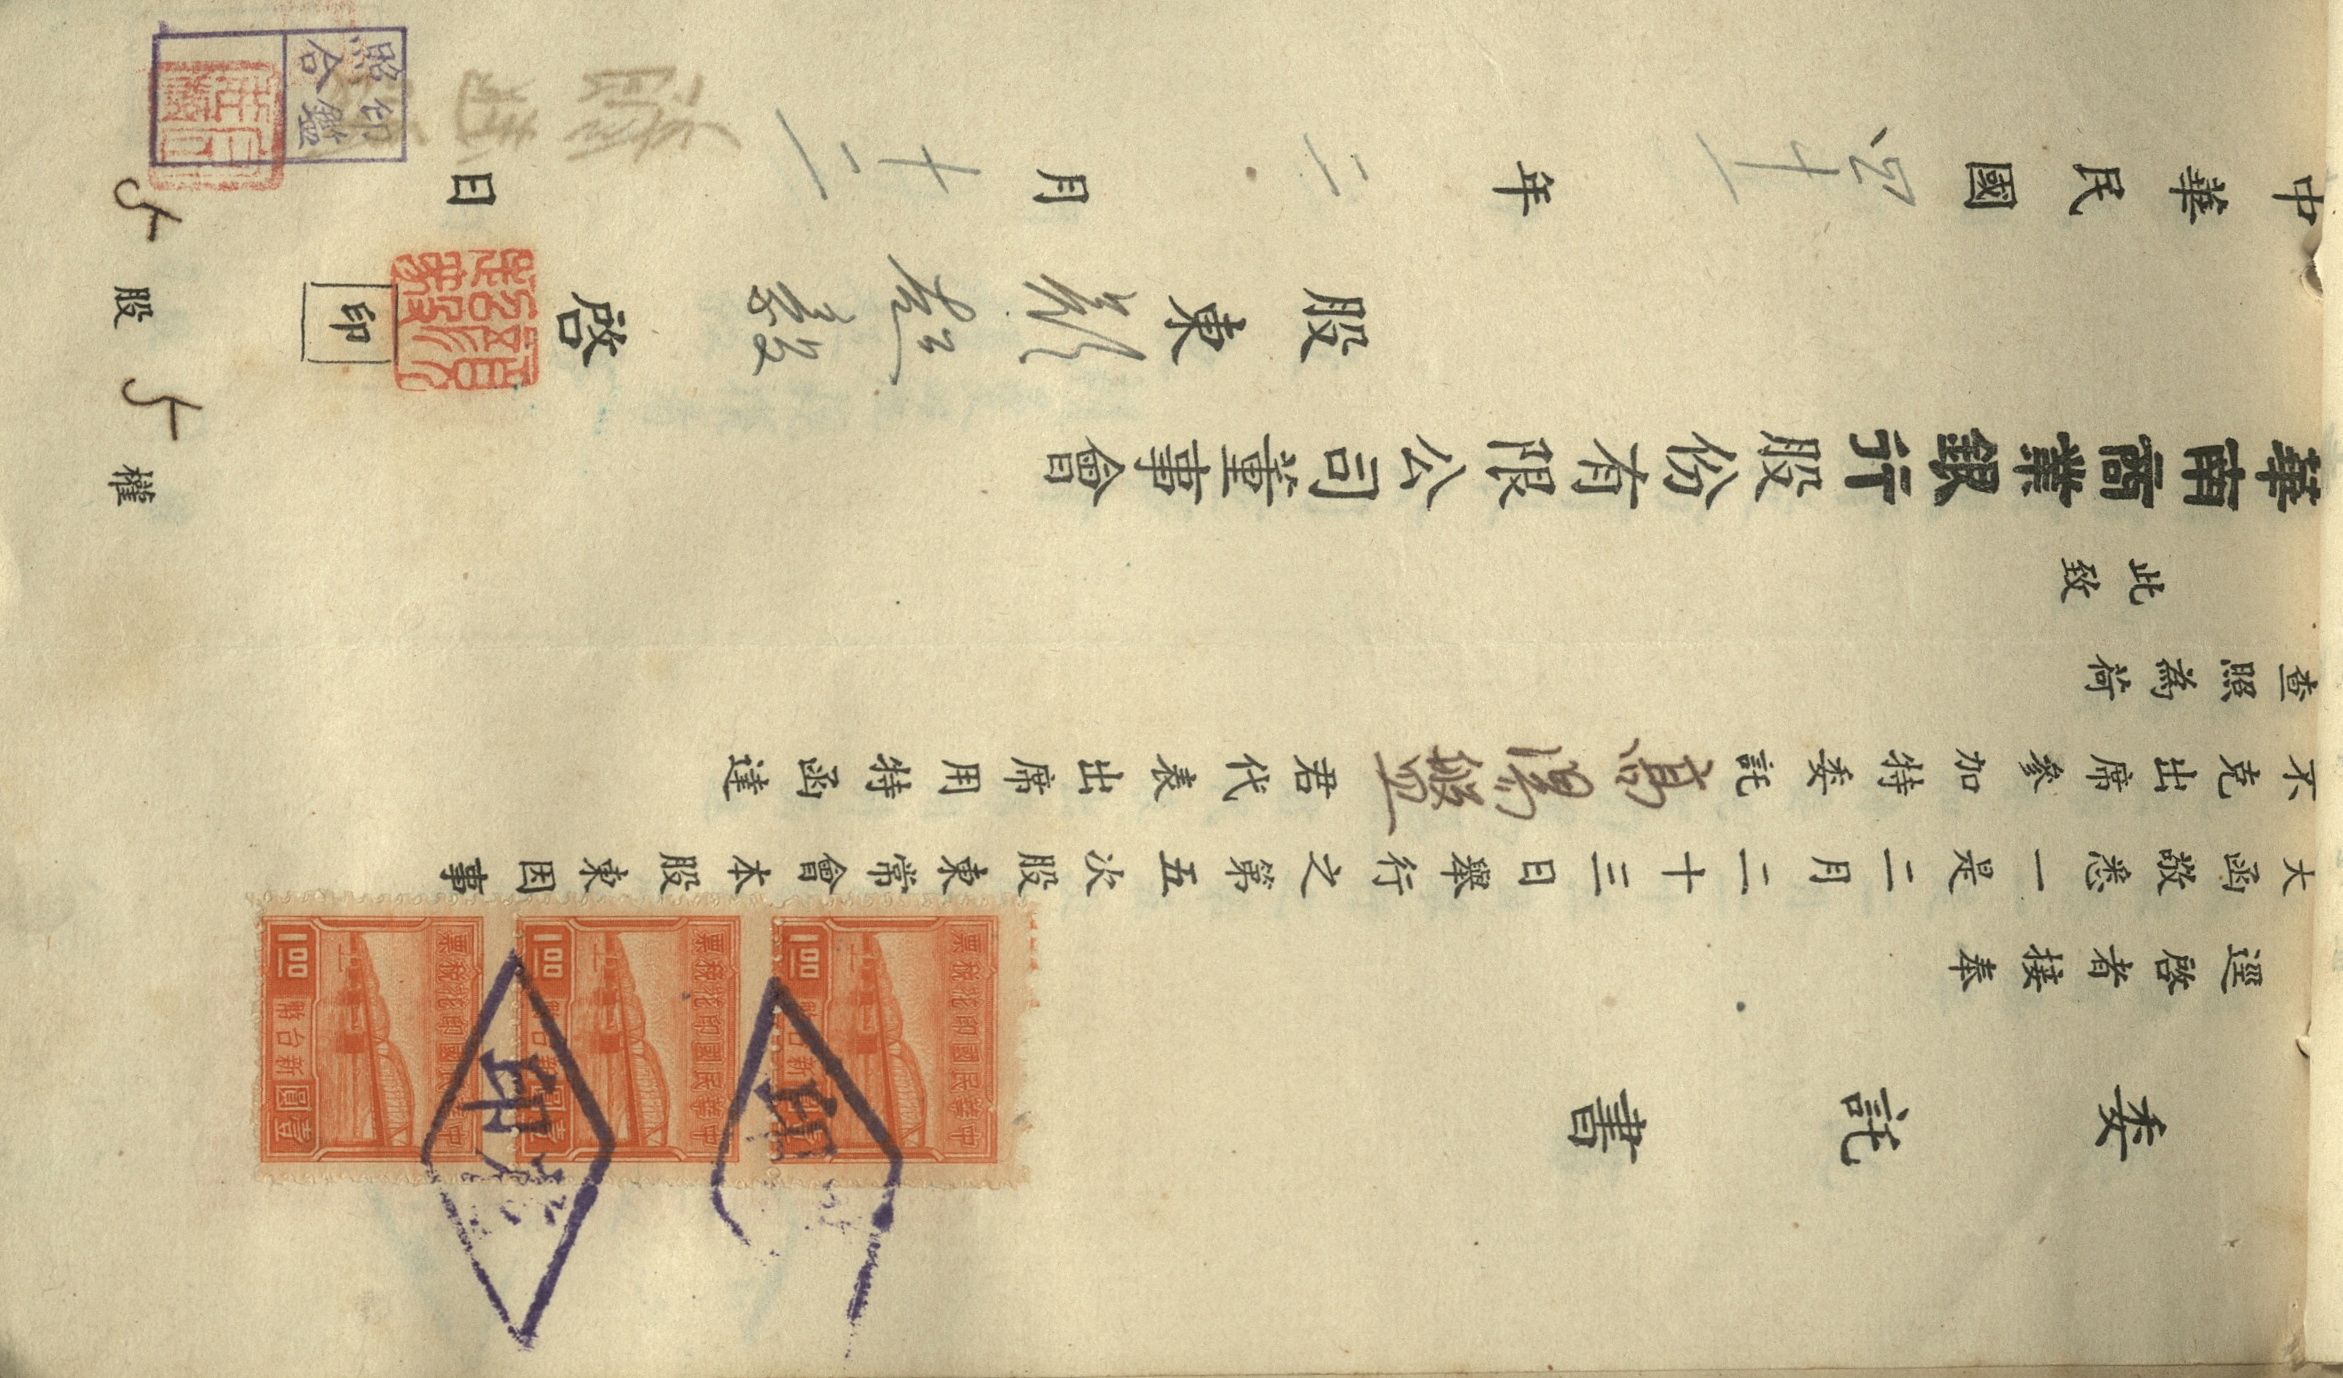 委託書
逕啓者接奉
大函敬悉一是二月二十三日舉行之第五次股東常會本股東因事
不克出席參加特委託高湯盤君代表出席用特函達
查照為荷
此致
華南商業銀行股份有限公司董事會
股東 啓
印
中華民國四十一年二月十二日
股 權
印鑑
照合
中華民國印花稅票
1.00
新台幣
壹圓
中華民國印花稅票
1.00
新台幣
壹圓
中華民國印花稅票
1.00
新台幣
壹圓